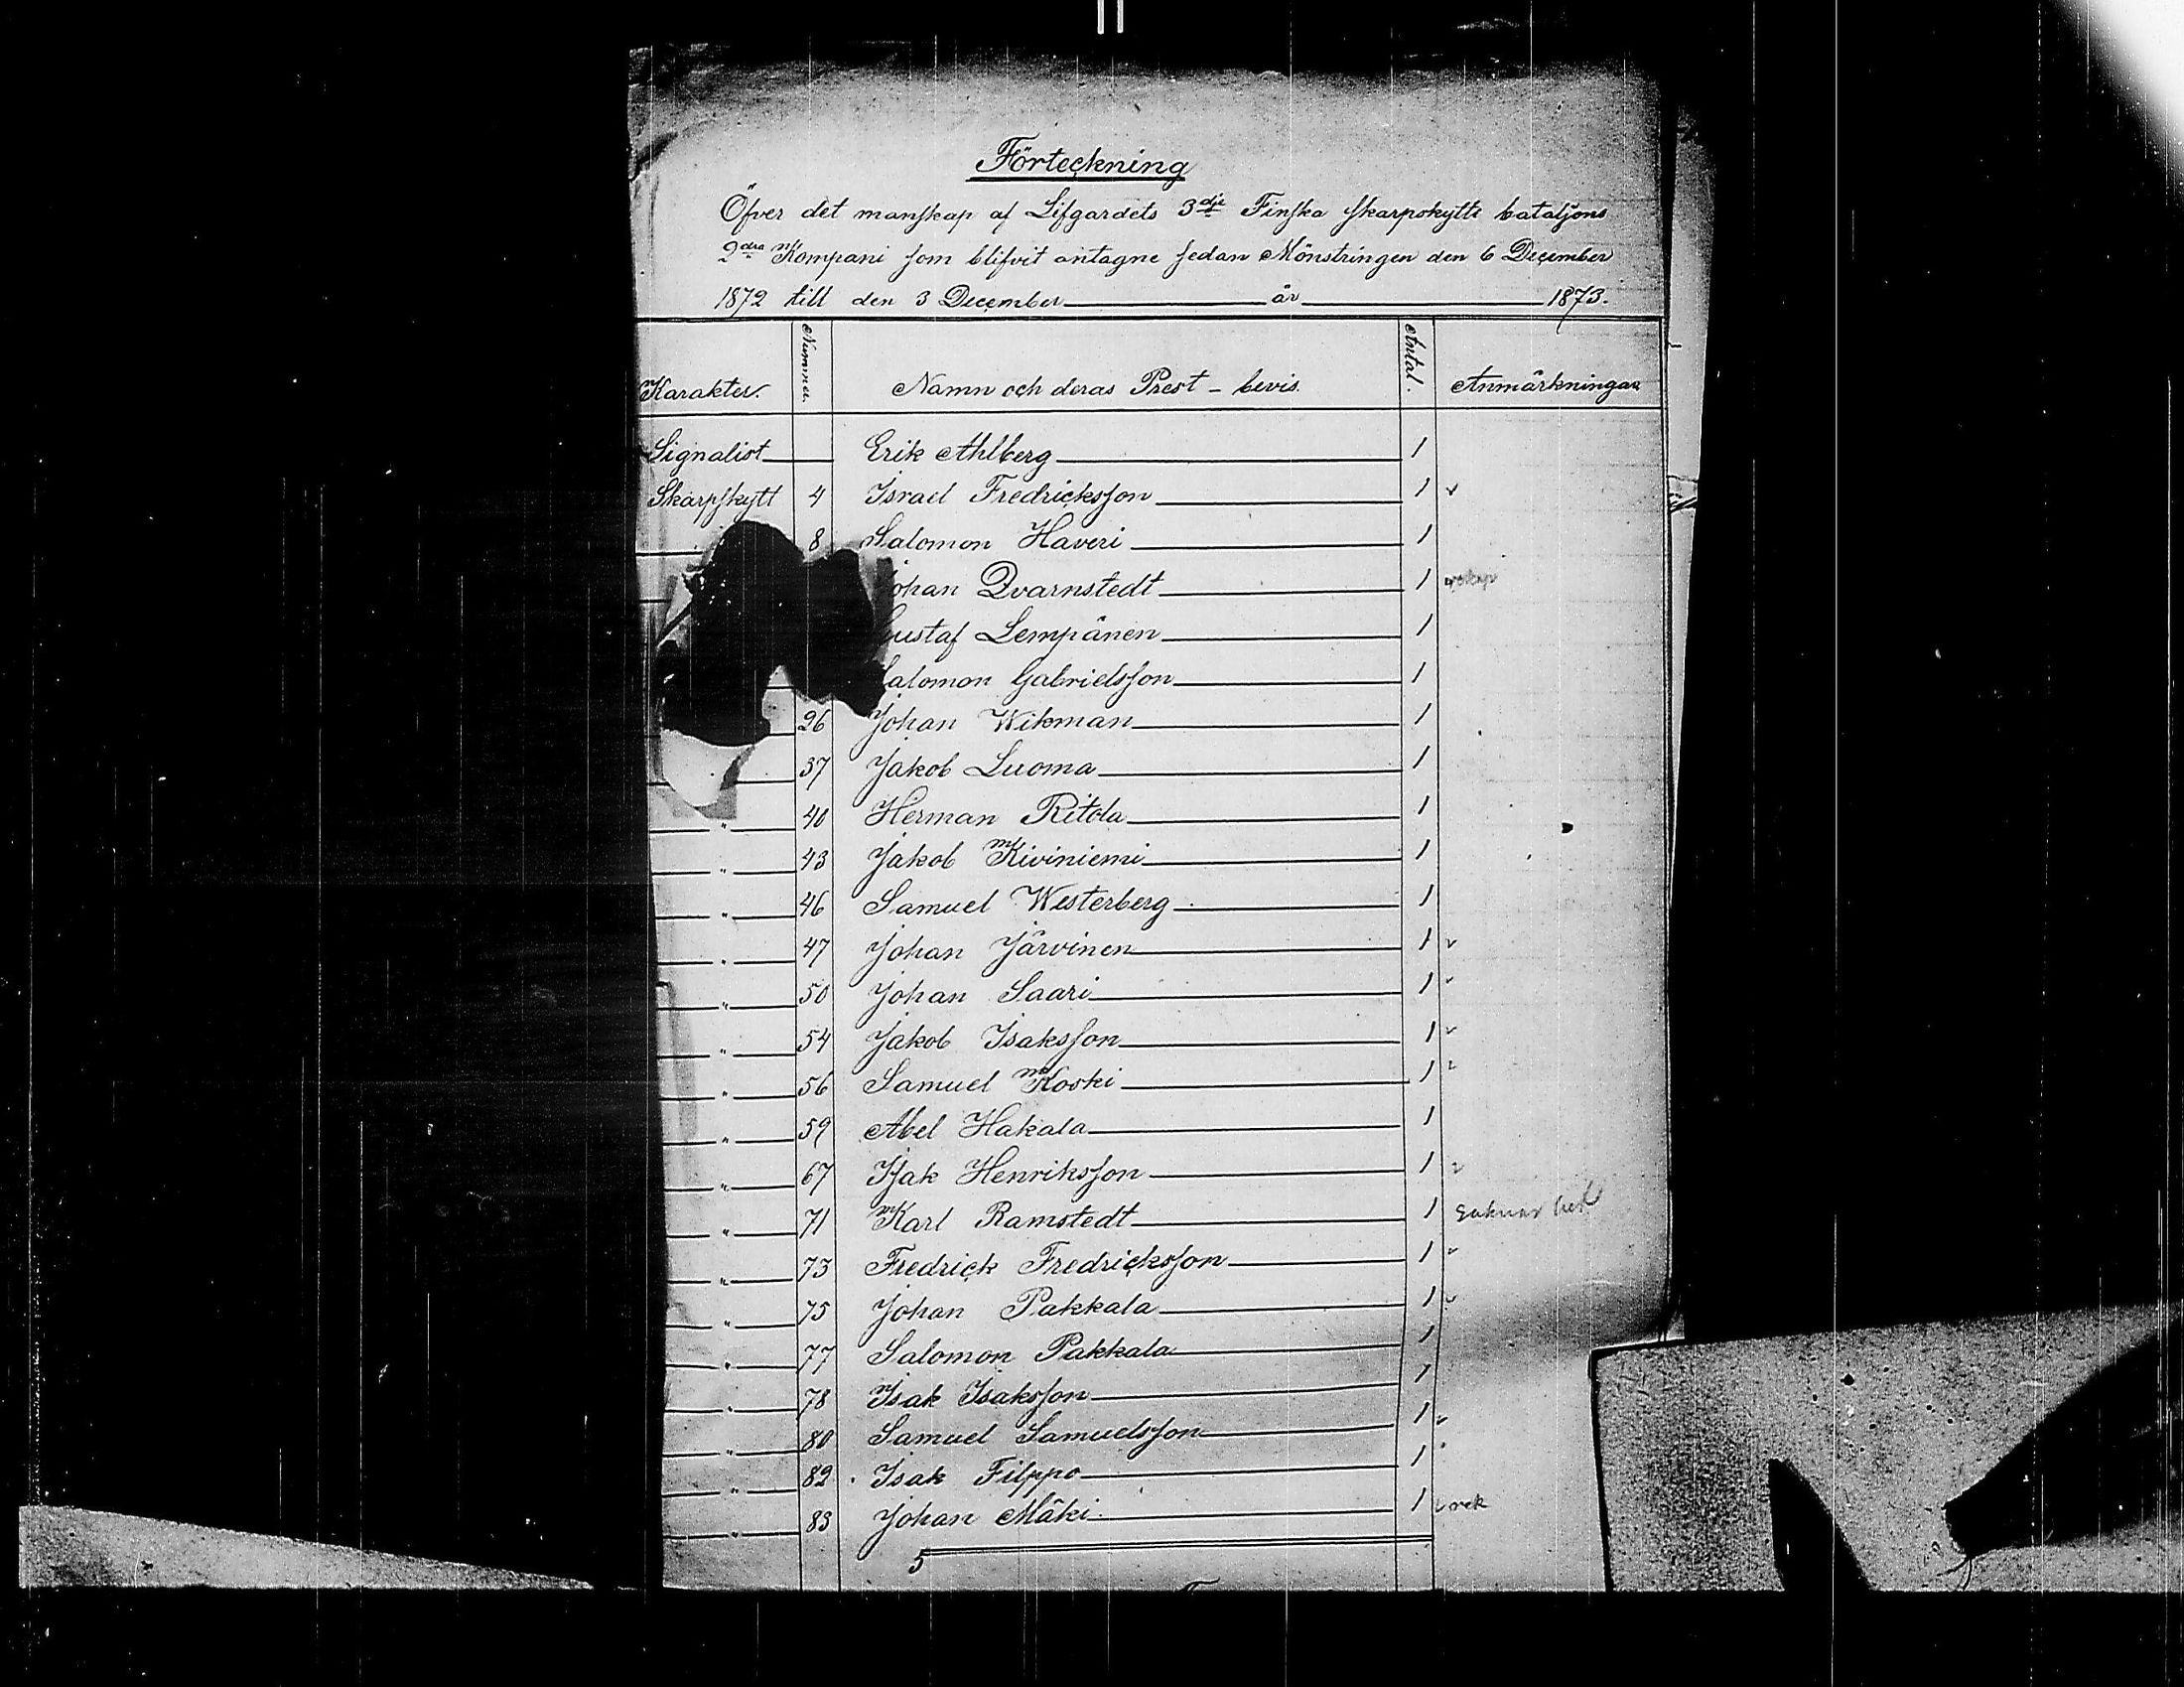 Förteckning
Öfver det manskap af Lifgardets 3dje Finska skarpskytte bataljons
2dra Kompani som blifvit antagne sedan Mönstringen den 6 December
1872 till den 3 December år 1873.
Karakter. Nummer. Namn och deras Prest-bevis. Antal. Anmärkningar
Signalist Erik Ahlberg 1
Skarpskytt 4 Israel Fredricksson 1
8 Salomon Haveri 1
Johan Qvarnstedt 1
Gustaf Lempänen 1
Salomon Gabrielsson 1
26 Johan Wikman 1
37 Jakob Luoma 1
" 40 Herman Ritola 1
" 43 Jakob Kiviniemi 1
" 46 Samuel Westerberg 1
" 47 Johan Järvinen 1
" 50 Johan Saari 1
" 54 Jakob Isaksson 1
" 56 Samuel Koski 1
" 59 Abel Hakala 1
" 67 Isak Henriksson 1
" 71 Karl Ramstedt 1
" 73 Fredrick Fredricksson 1
" 75 Johan Pakkala 1
" 77 Salomon Pakkala 1
" 78 Isak Isaksson 1
" 80 Samuel Samuelsson 1
" 82 Isak Filppo 1
" 83 Johan Mäki 1
5